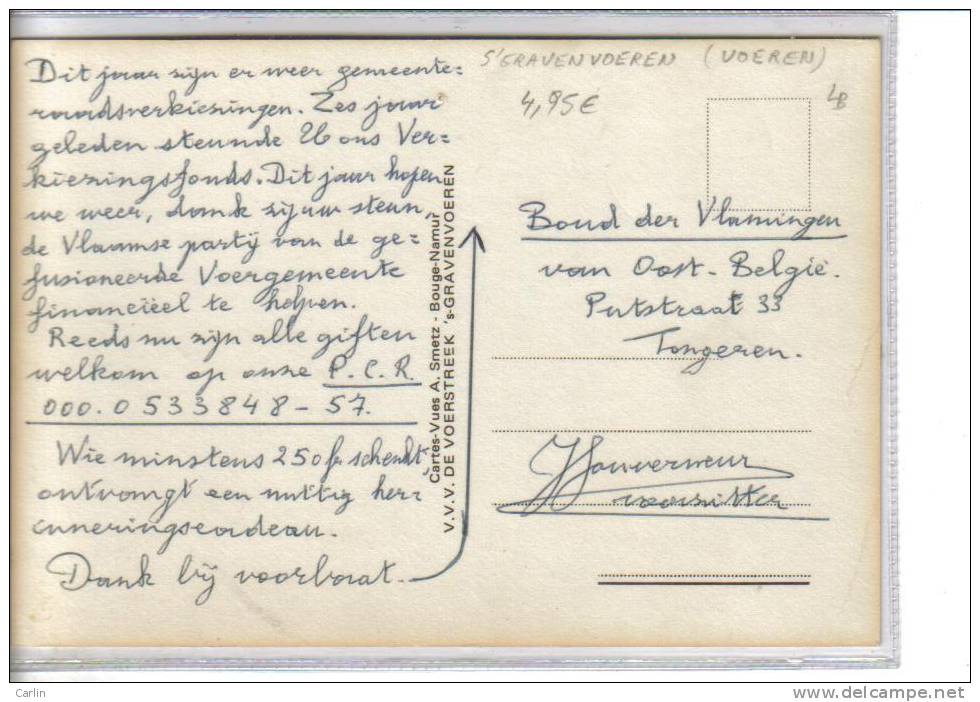 Dit jaar zijn er weer gemeente=
raadsverkiezingen. Zes jaar
geleden steunde U ons Ver=
kiezingsfonds. Dit jaar hopen
we weer, dank zij uw steun,
de Vlaamse partij van de ge=
fusioneerde Voergemeente
financiëel te helpen.
Reeds nu zijn alle giften
welkom op onze P.C.R.
000.0533848-57.
Wie minstens 250 fr schenkt
ontvangt een nuttig her=
inneringscadeau.
Dank bij voorbaat.
Cartes-Vues A. Smetz - Bouge-Namur
V.V.V. DE VOERSTREEK 's-GRAVENVOEREN
S'GRAVENVOEREN (VOEREN)
4,95€
Bond der Vlamingen
van Oost-België.
Putstraat 33
Tongeren.
Gouverneur
voorzitter
Carlin
delcampe.net